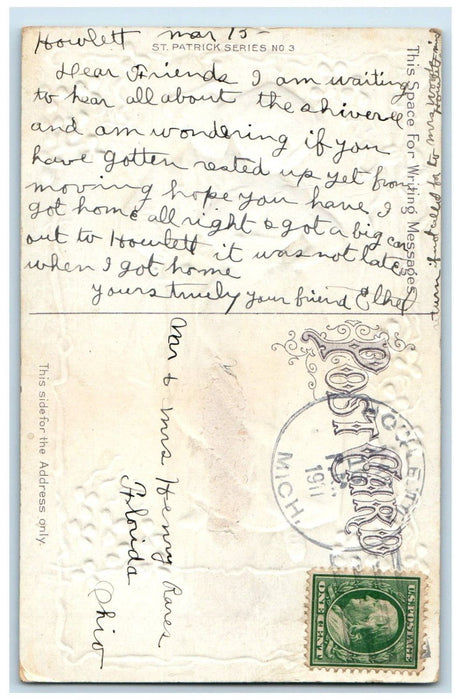 Howlett Mar 15-
ST. PATRICK SERIES NO 3
Dear Friends I am waiting
to hear all about the shiveree
and am wondering if you
have gotten rested up yet from
moving hope you have, I
got home all right & got a big car
out to Howlett it was not late
when I got home
yours truely your friend Ethel
This Space For Writing Messages
turn if not called for to Mrs
POST CARD
This side for the Address only.
Mr & Mrs Henry
Florida
Ohio
1911
MICH.
U.S. POSTAGE
ONE CENT